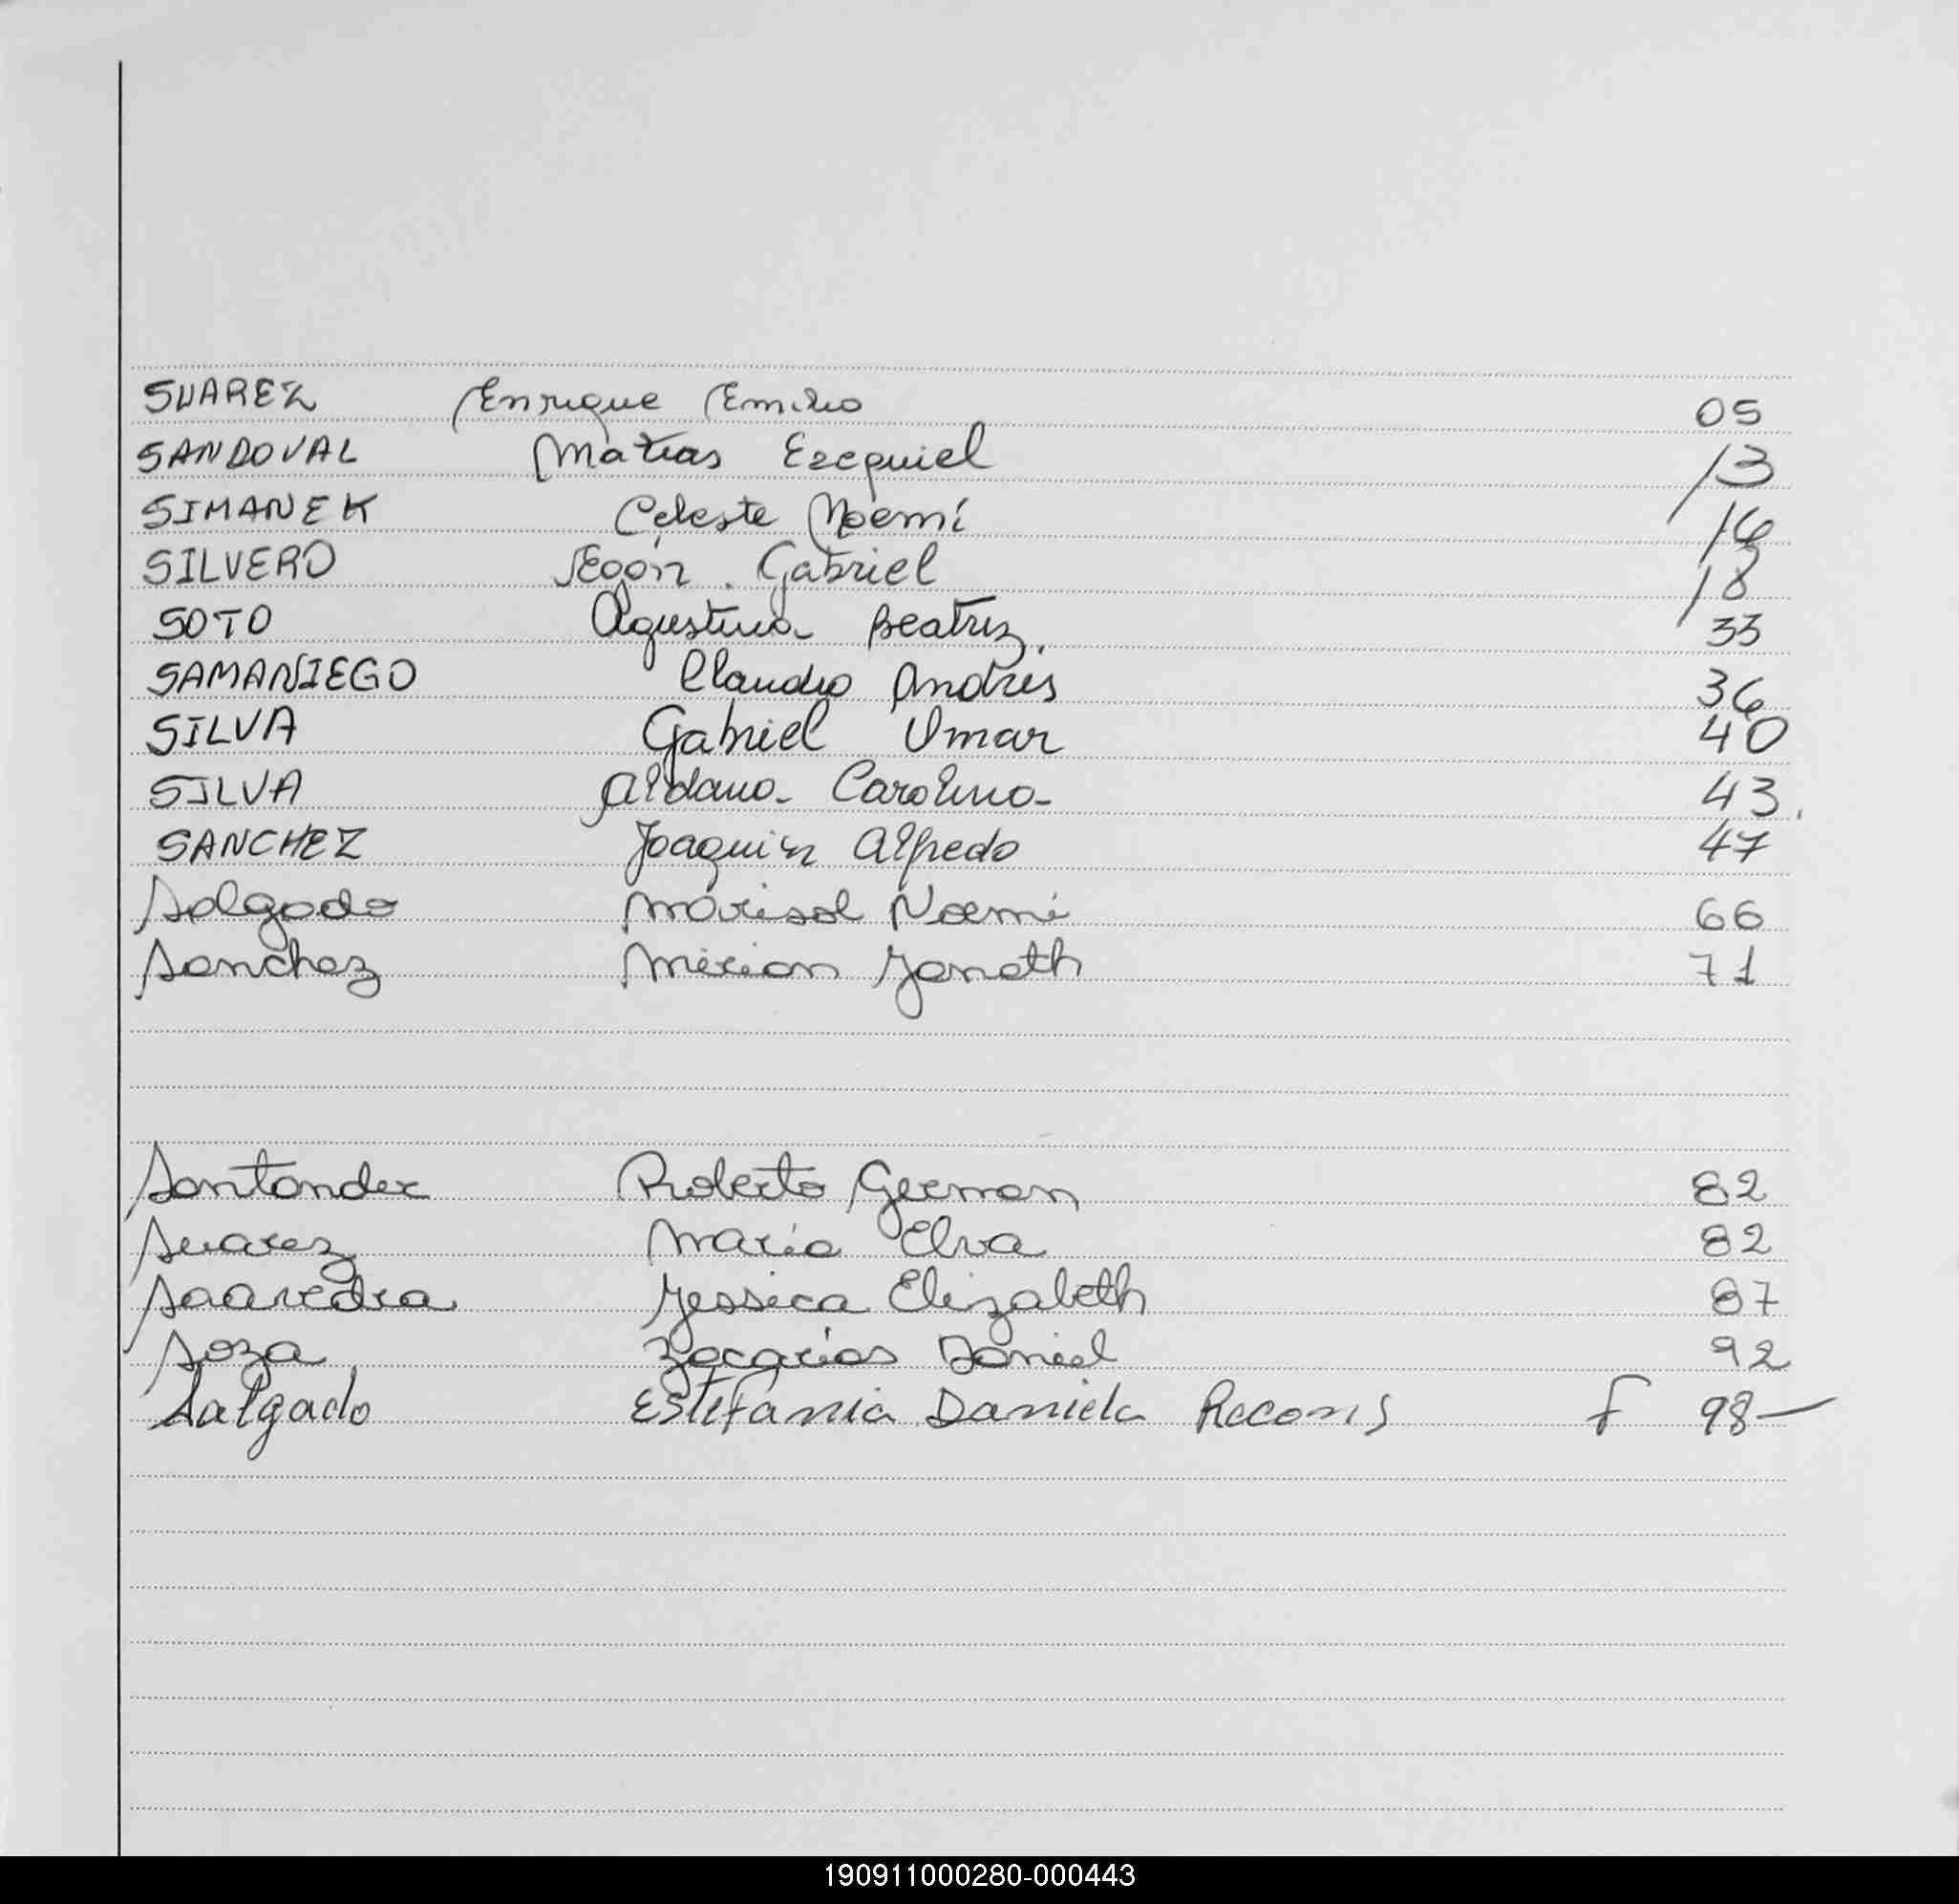 SUAREZ Enrique Emilio 05
SANDOVAL Matias Ezequiel 13
SIMANEK Celeste Noemí 16
SILVERO Gabriel 18
SOTO Agustina Beatriz. 33
SAMANIEGO Claudio Andres 36
SILVA Gabriel Omar 40
SILVA Aldana Carolina 43
SANCHEZ Joaquin Alfredo 47
Salgado Marisol Noemi 66
Sanchez Mirian Janeth 71
Santander Roberto German 82
Suarez Maria Elva 82
Saavedra Jessica Elizabeth 87
Soza Zacarias Daniel 92
Salgado Estefania Daniela Recons f 98-
190911000280-000443